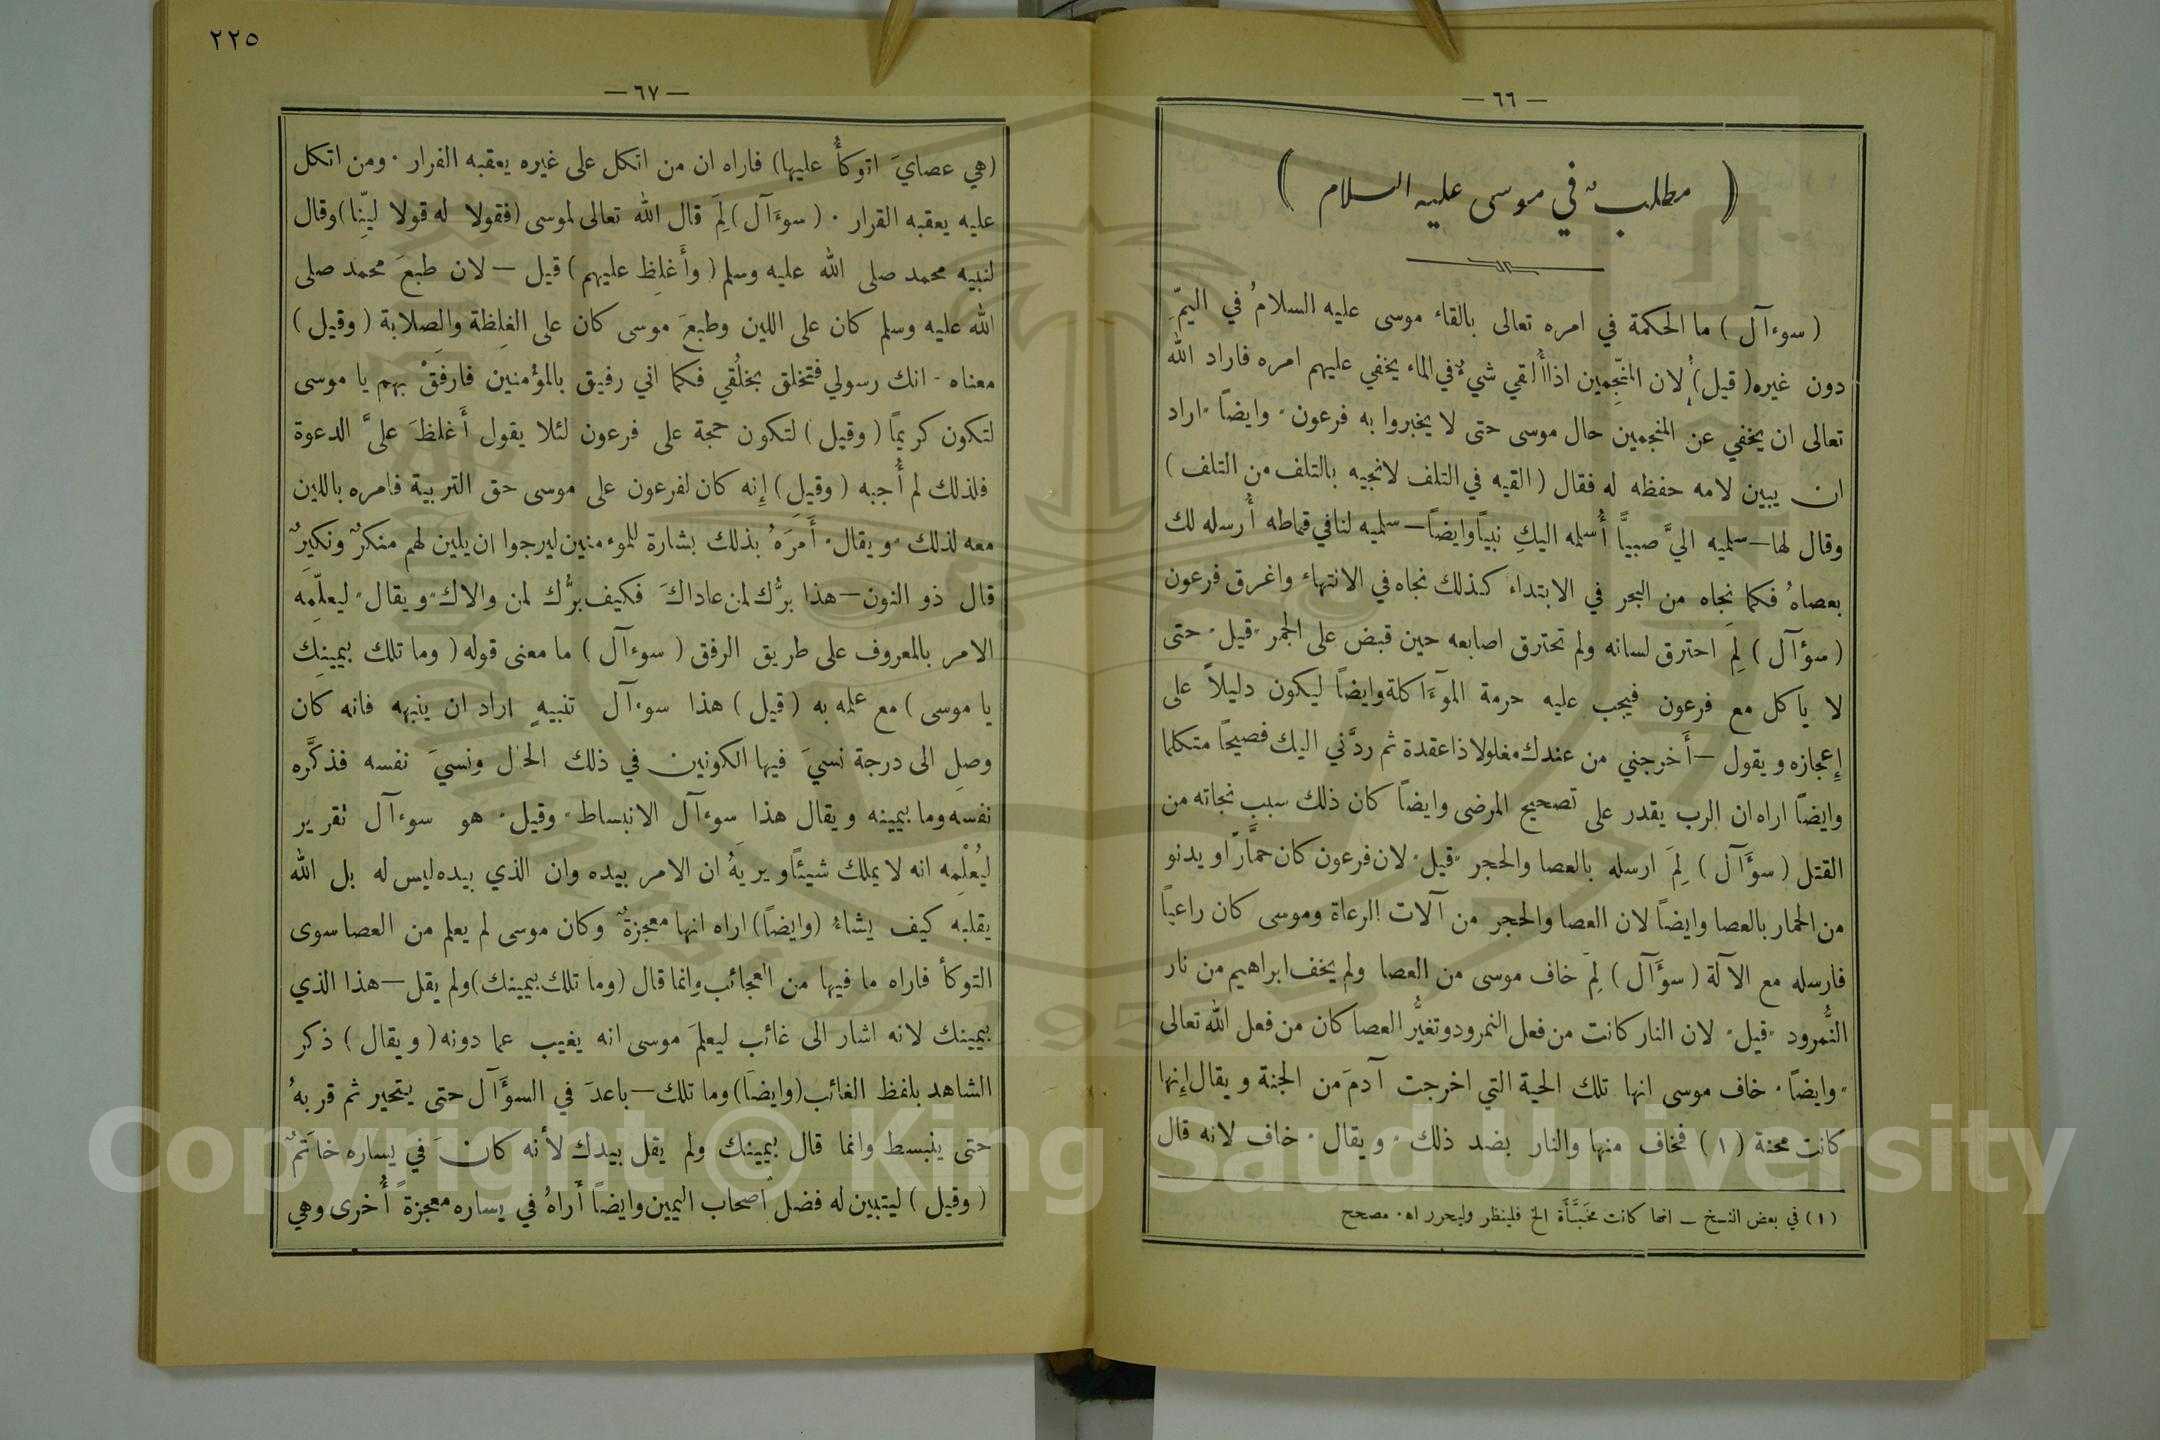 — ٦٦ —
( مطلبٌ في موسى عليه السلام )
( سوءآل ) ما الحكمة في امره تعالى بالقاء موسى عليه السلامُ في اليمّ
دون غيره( قيل) لان المنجِّمين اذاأُلقي شيءٌ في الماء يخفي عليهم امره فاراد الله
تعالى ان يخفي عن المنجمين حال موسى حتى لا يخبروا به فرعون ٠ وايضاً ٠اراد
ان يبين لامه حفظه له فقال ( القيه في التلف لانجيه بالتلف من التلف )
وقال لها—سلميه اليَّ صبيًّا أُسلمه اليكِ نبيًاوايضاً—سلميه لنافي قماطه أُرسله لك
بعصاهُ فكما نجاه من البحر في الابتداء كذلك نجاه في الانتهاءِ واغرق فرعون
( سؤآل ) لِمَ احترق لسانه ولم تحترق اصابعه حين قبض على الجمر ٠قيل٠ حتى
لا ياكل مع فرعون فيجب عليه حرمة الموَءاكلةوايضاً ليكون دليلاً على
إِعجازه ويقول —أَخرجني من عندك مغلولا ذاعقدة ثم ردَّني اليك فصيحاً متكلما
وايضاً اراه ان الرب يقدر على تصحيح المرضى وايضاً كان ذلك سبب نجاته من
القتل ( سؤَآل ) لِمَ ارسله بالعصا والحجر ٠قيل٠ لان فرعون كان حمَّارًا ويدنو
من الحمار بالعصا وايضاً لان العصا والحجر من آلات الرعاة وموسى كان راعياً
فارسله مع الآلة ( سؤَآل ) لِمَ خاف موسى من العصا ولم يخف ابراهيم من نار
النُمرود ٠قيل٠ لان النار كانت من فعل النمرود وتغيُّر العصا كان من فعل الله تعالى
٠وايضاً٠ خاف موسى انها تلك الحية التي اخرجت آدمَ من الجنة ويقال إِنها
كانت محنة ( ١ ) فخاف منها والنار بضد ذلك ٠ ويقال ٠ خاف لانه قال
(١) في بعض النسخ — انها كانت مخبَّأَة الخ فلينظر وليحرر اه٠ مصحح
٢٢٥
— ٦٧ —
(هي عصايَ اتوكأُ عليها) فاراه ان من اتكل على غيره يعقبه الفرار ٠ ومن اتكل
عليه يعقبه القرار ٠ ( سوءَآل ) لِمَ قال الله تعالى لموسى (فقولا له قولا ليِّنا)وقال
لنبيه محمد صلى الله عليه وسلم ( وأَغلِظ عليهم ) قيل — لان طبعَ محمد صلى
الله عليه وسلم كان على اللين وطبعَ موسى كان على الغِلظة والصلابة ( وقيل )
معناه - انك رسولي فتخلق بخُلُقي فكما اني رفيق بالمؤمنين فارفقْ بهم يا موسى
لتكون كريمًا ( وقيل ) لتكون حجة على فرعون لئلا يقول أَغلظَ عليَّ الدعوة
فلذلك لم أُجبه ( وقيل ) إِنه كان لفرعون على موسى حق التربية فامره باللين
معه لذلك ٠ويقال٠ أَمَرَهُ بذلك بشارة للموءمنين ليرجوا ان يلين لهم منكرٌ ونكيرٌ
قال ذو النون—هذا برُّك لمن عاداكَ فكيف برُّك لمن والاك٠ويقال٠ ليعلِّمه
الامر بالمعروف على طريق الرفق ( سوءآل ) ما معنى قوله ( وما تلك بيمينِك
يا موسى ) مع علمه به ( قيل ) هذا سوءآل تنبيهٍ اراد ان ينبهه فانه كان
وصل الى درجة نسيَ فيها الكونين في ذلك الحال ونسيَ نفسه فذكَّره
نفسه وما بيمينه ويقال هذا سوءآل الانبساط ٠ وقيل ٠ هو سوءآل تقرير
ليُعْلِمه انه لا يملك شيئًاويريَهُ ان الامر بيده وان الذي بيده ليس له بل الله
يقلبه كيف يشاءُ (وايضاً) اراه انها معجزةٌ وكان موسى لم يعلم من العصا سوى
التوكأ فاراه ما فيها من العجائب وانما قال (وما تلك بيمينك)ولم يقل—هذا الذي
بيمينك لانه اشار الى غائب ليعلمَ موسى انه يغيب عما دونه( ويقال ) ذكر
الشاهد بلفظ الغائب(وايضاً)وما تلك—باعدَ في السؤَآل حتى يتحير ثم قربهُ
حتى ينبسط وانما قال بيمينك ولم يقل بيدك لأنه كان في يساره خاتمٌ
( وقيل ) ليتبين له فضل اصحاب اليمين وايضاً أَراهُ في يساره معجزةً أُخرى وهي
Copyright © King Saud University